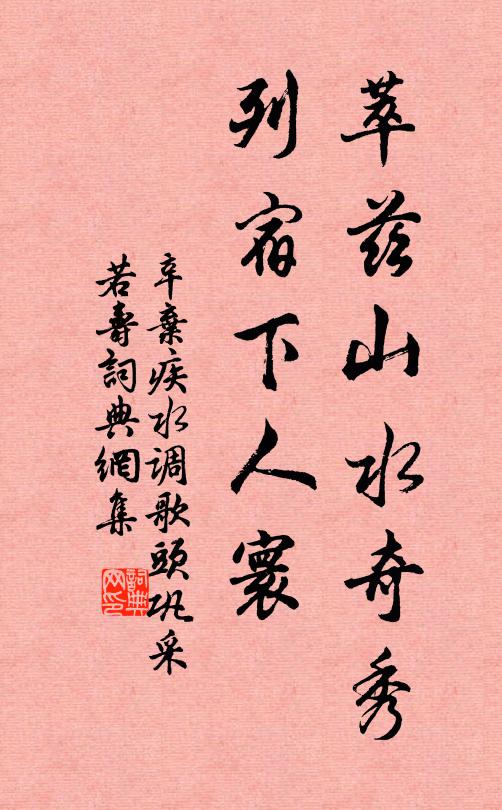 萃兹山水奇秀
列宿下人寰
辛棄疾水调歌頭巩采
若壽詞典網集
詞典
网印